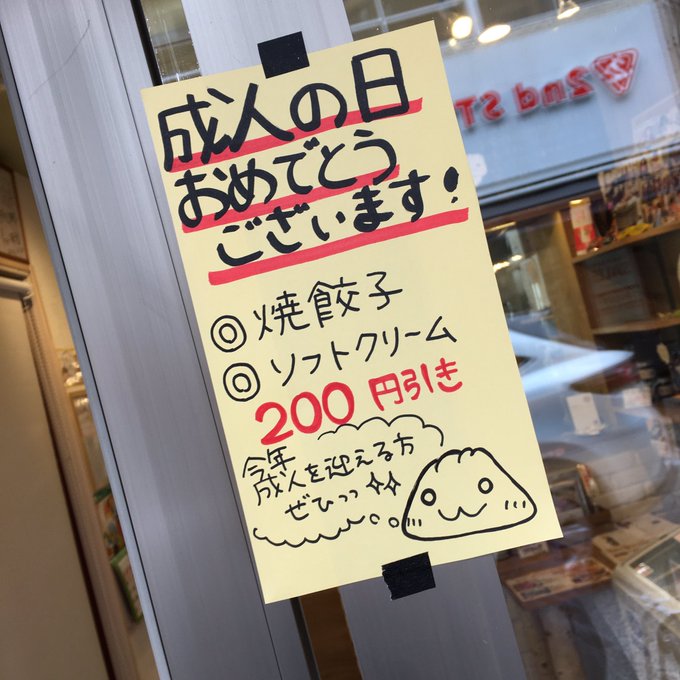 成人の日
おめでとう
ございます!
◎焼餃子
◎ソフトクリーム
200円引き
今年
成人を迎える方
ぜひっっ
2nd ST